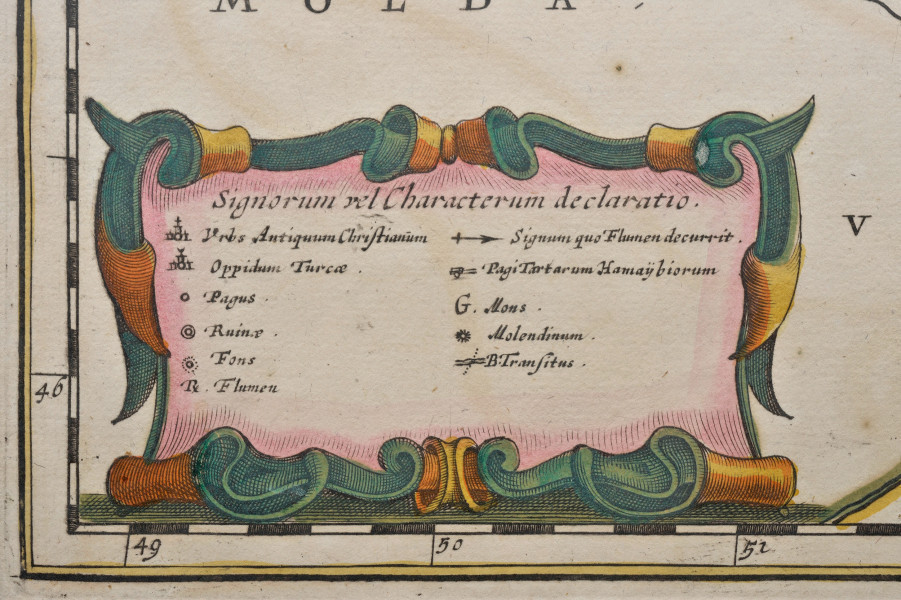 MOLDA
V
Signorum vel Characterum declaratio.
Vrbs Antiquum Christianūm
Oppidum Turcæ.
Pagus.
Ruinæ.
Fons
R. Flumen
Signum quo Flumen decurrit.
Pagi Tartarum Hamaÿbiorum
G. Mons.
Molendinum.
B. Transitus.
46
49
50
51